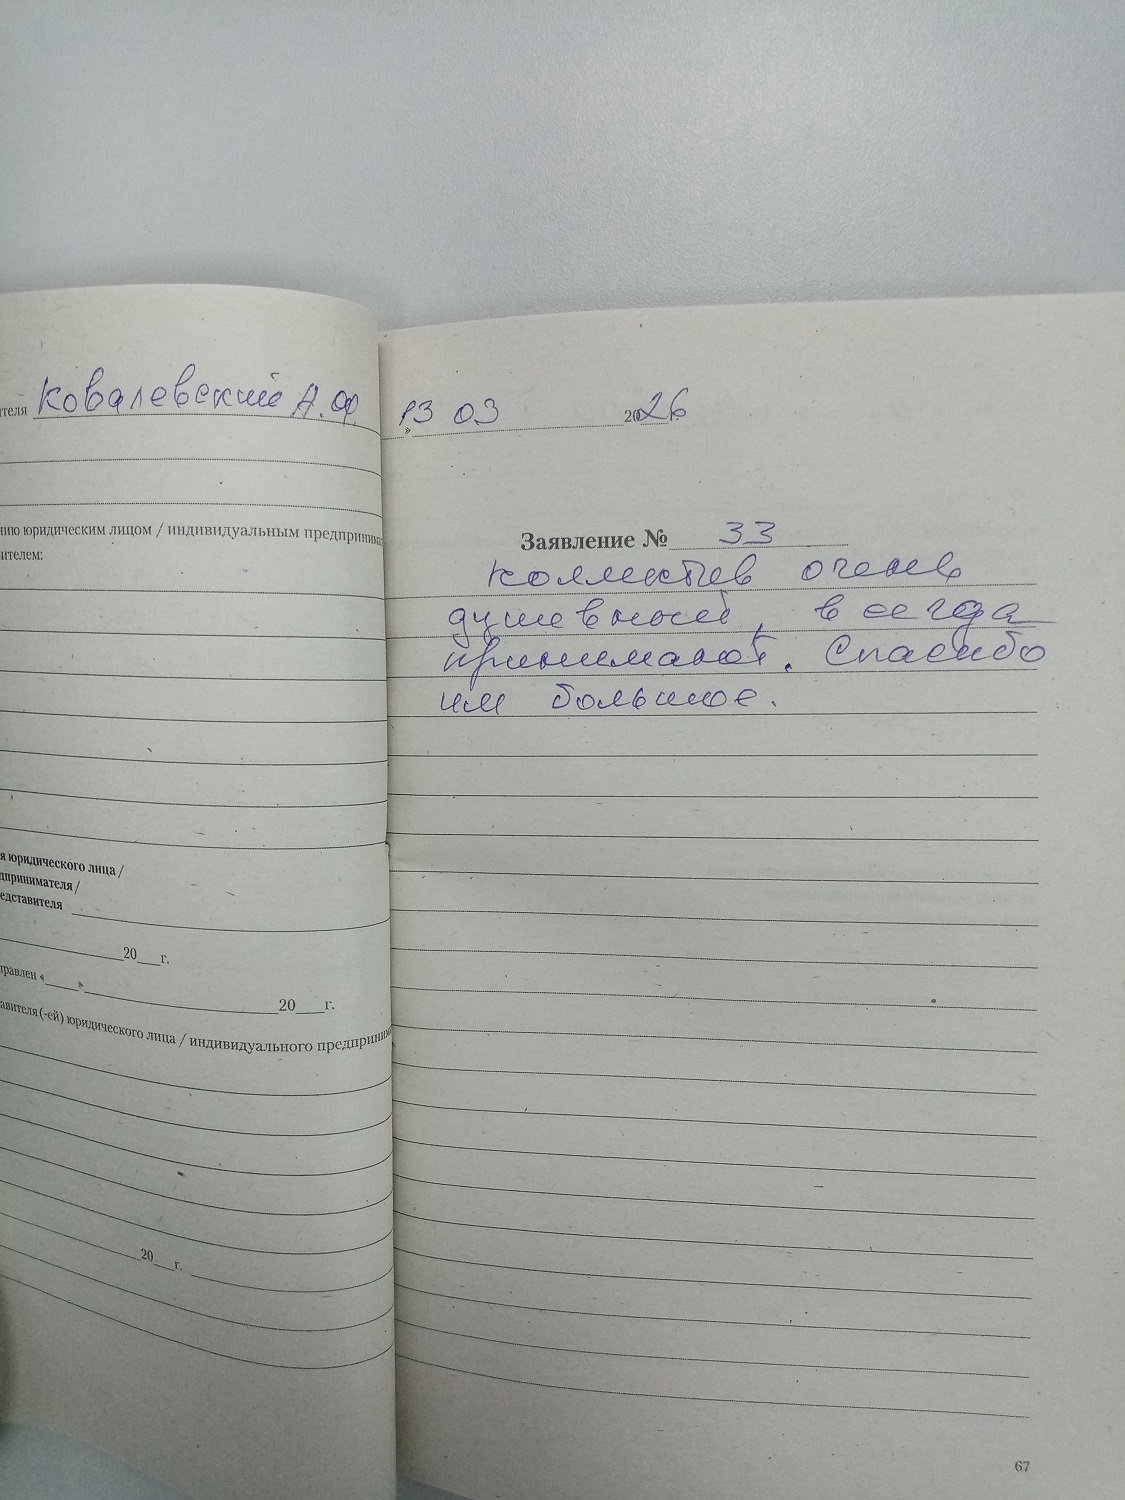 теля Ковалевский А.Ф.
нию юридическим лицом / индивидуальным предприним
ителем:
я юридического лица /
дпринимателя /
едставителя
20___г.
правлен «____»____________20___г.
авителя(-ей) юридического лица / индивидуального предприни
20___г.
13 » 03 2026
Заявление № 33
коллектив очень
душевный, всегда
принимают. Спасибо
им большое.
67